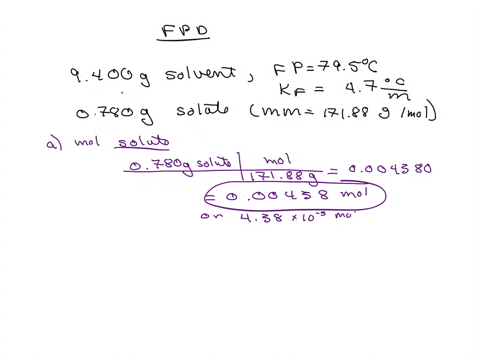 FPD
9.400g solvent, FP=79.5°C
KF = 4.7 °C/m
0.780g solute (mm=171.88 g/mol)
a) mol solute
0.780g solute | mol
171.88g = 0.004380
= 0.00458 mol
or 4.38 ×10⁻³ mo